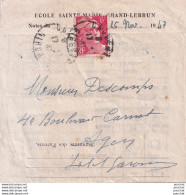 ECOLE SAINTE-MARIE GRAND-LEBRUN
Notes du 15 Nov. 1947
Monsieur Descomps
40 Boulevard Carnot
Agen
Signature des Parents
Lot et Garonne